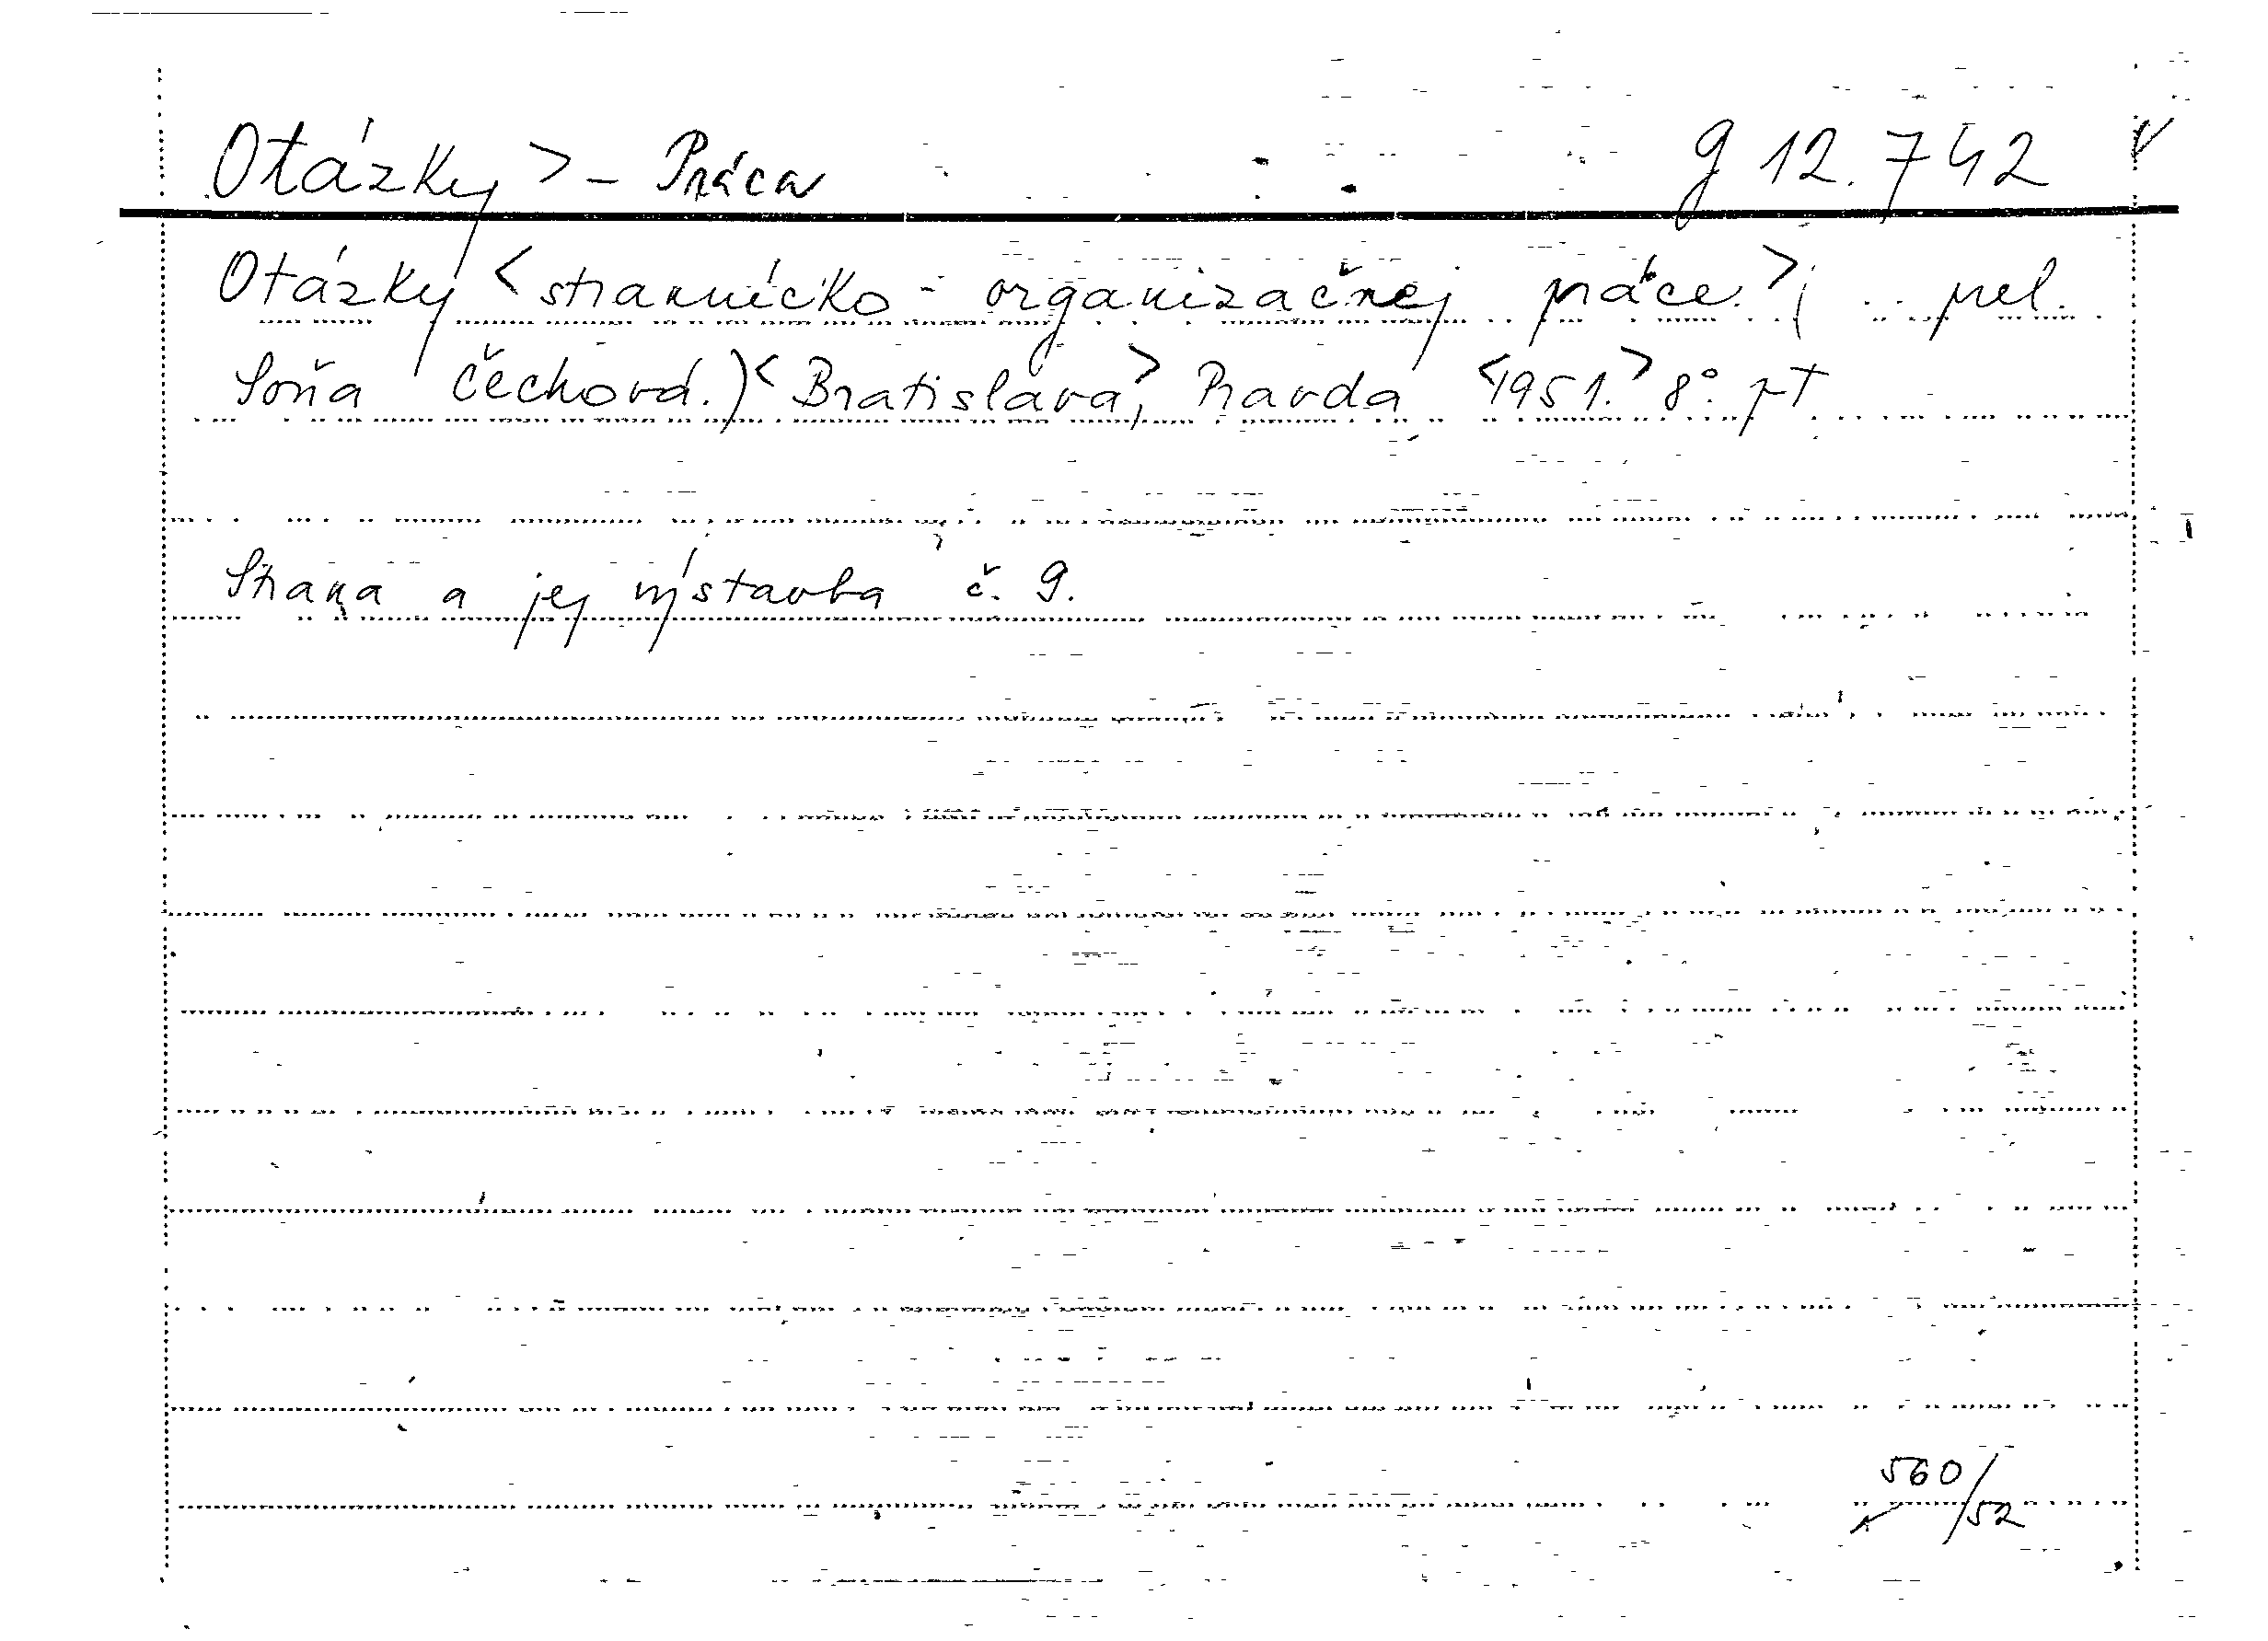 Otázky > - Práca g 12.742
Otázky < strannícko - organizačnej práce. > ( .. prel.
Soňa Čechová.) < Bratislava, > Pravda < 1951. > 8°. pT
Strana a jej výstavba č. 9.
560/52